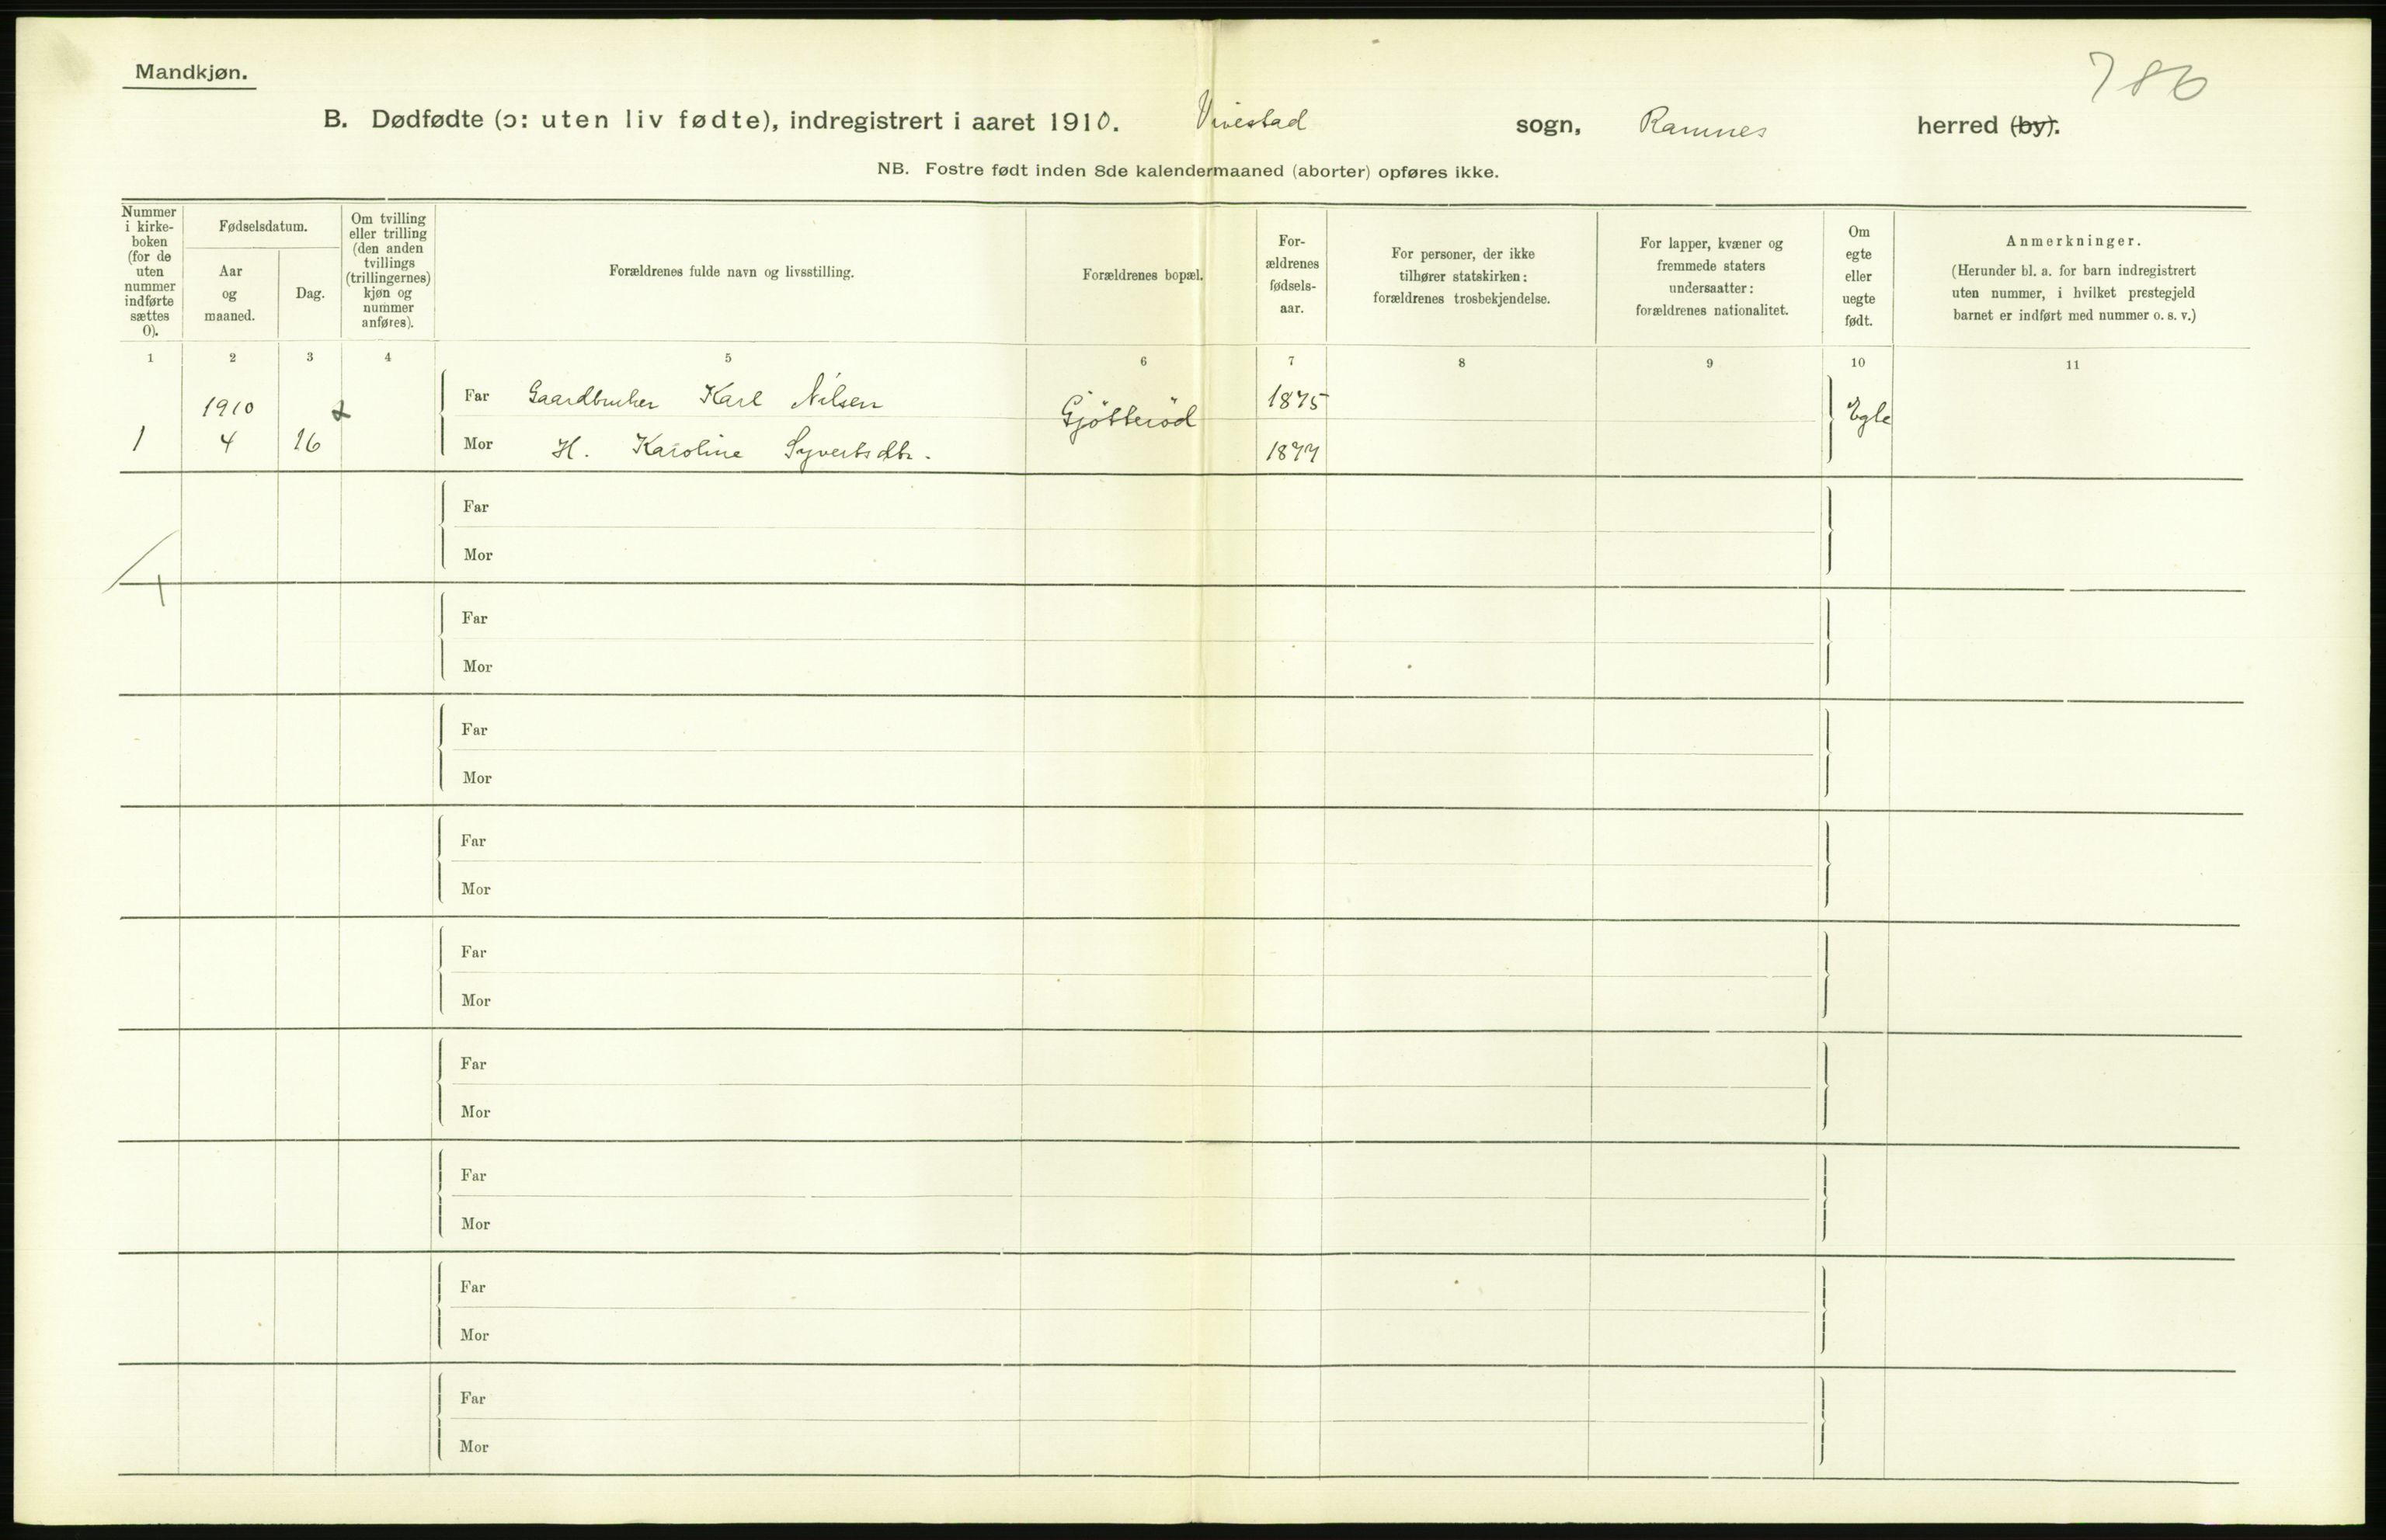 Mandkjøn.
786
B. Dødfødte (ɔ: uten liv fødte), indregistrert i aaret 1910. Vivestad sogn, Ramnes herred (by).
NB. Fostre født inden 8de kalendermaaned (aborter) opføres ikke.
Nummer
i kirke-
boken
(for de
uten
nummer
indførte
sættes
0).
Fødselsdatum.
Aar
og
maaned.
Dag.
Om tvilling
eller trilling
(den anden
tvillings
(trillingernes)
kjøn og
nummer
anføres).
Forældrenes fulde navn og livsstilling.
Forældrenes bopæl.
For-
ældrenes
fødsels-
aar.
For personer, der ikke
tilhører statskirken:
forældrenes trosbekjendelse.
For lapper, kvæner og
fremmede staters
undersaatter:
forældrenes nationalitet.
Om
egte
eller
uegte
født.
Anmerkninger.
(Herunder bl. a. for barn indregistrert
uten nummer, i hvilket prestegjeld
barnet er indført med nummer o. s. v.)
1 2 3 4 5 6 7 8 9 10 11
1910 Far Gaardbruker Karl Nilsen Gjötteröd 1875 Egte
1 4 16 Mor H. Karoline Syvertsdtr. 1877
Far
Mor
Far
Mor
Far
Mor
Far
Mor
Far
Mor
Far
Mor
Far
Mor
Far
Mor
Far
Mor